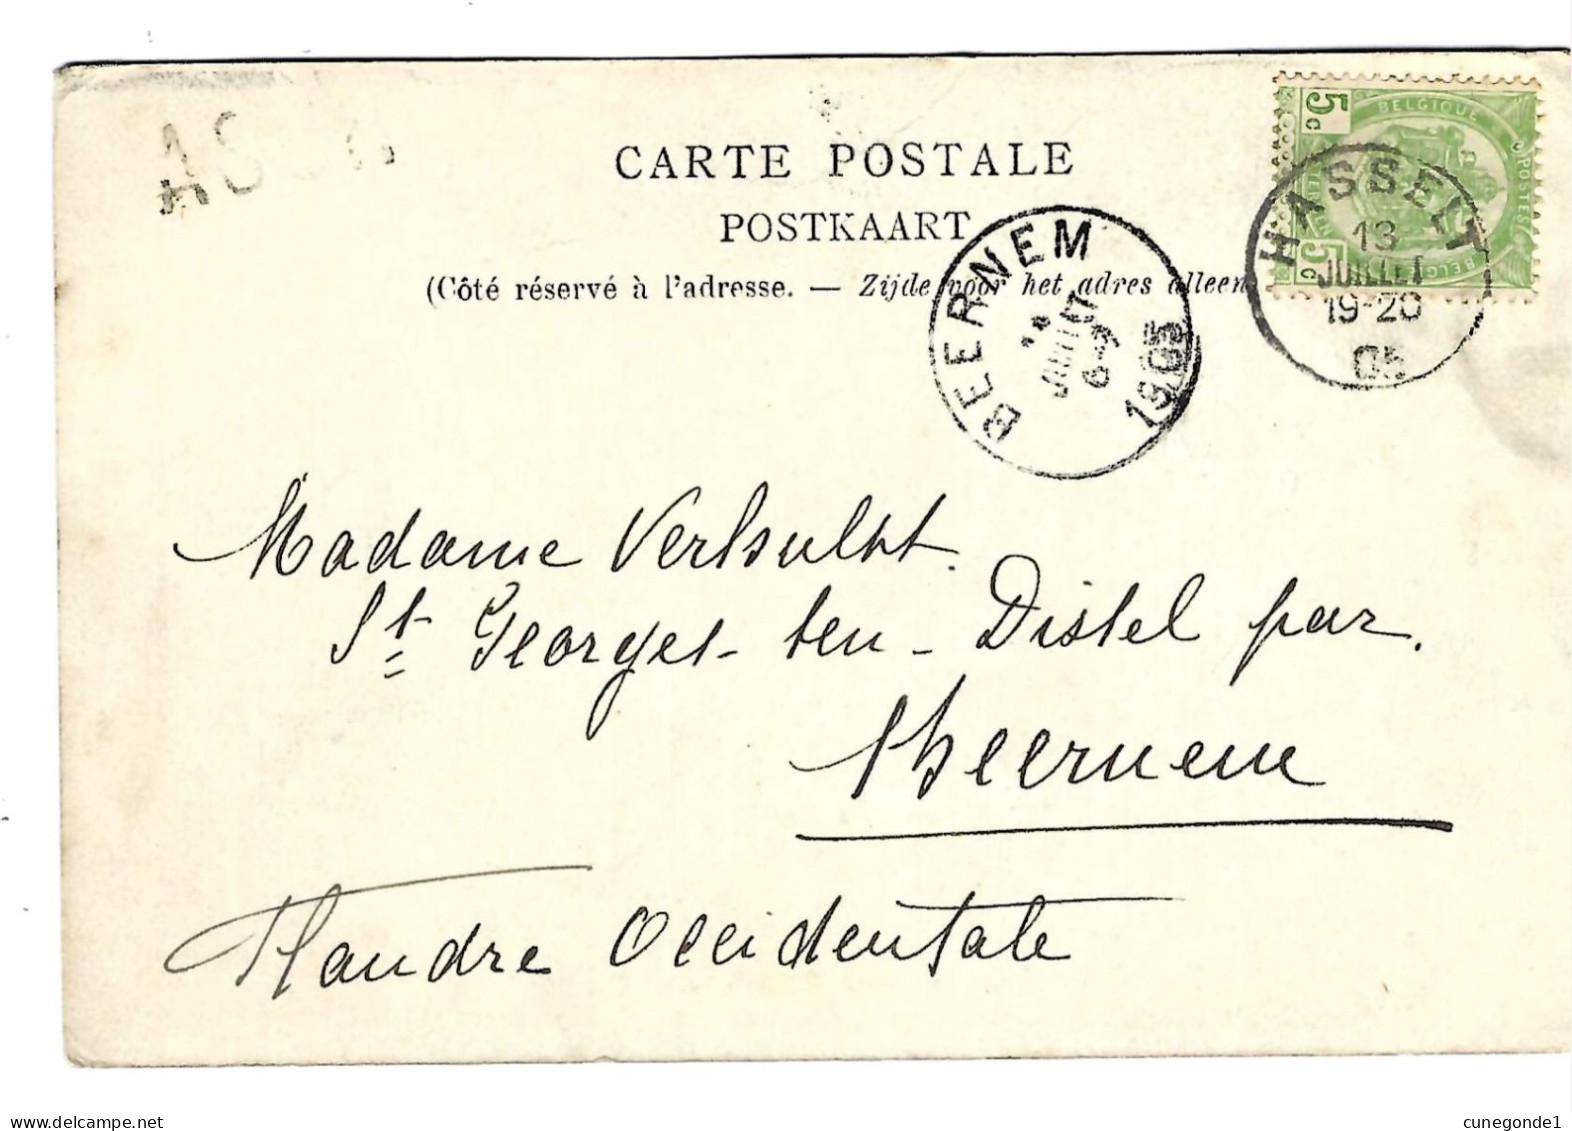 CARTE POSTALE
POSTKAART
(Côté réservé à l'adresse. — Zijde voor het adres alleen
5c BELGIQUE POSTES
5c BELGIE
HASSELT
13
JUILLET
19-20
05
BEERNEM
JUILLET
6-7
1905
Madame Verhulst.
St Georges-ten-Distel par.
Beernem
Flandre Occidentale
www.delcampe.net
cunegonde1